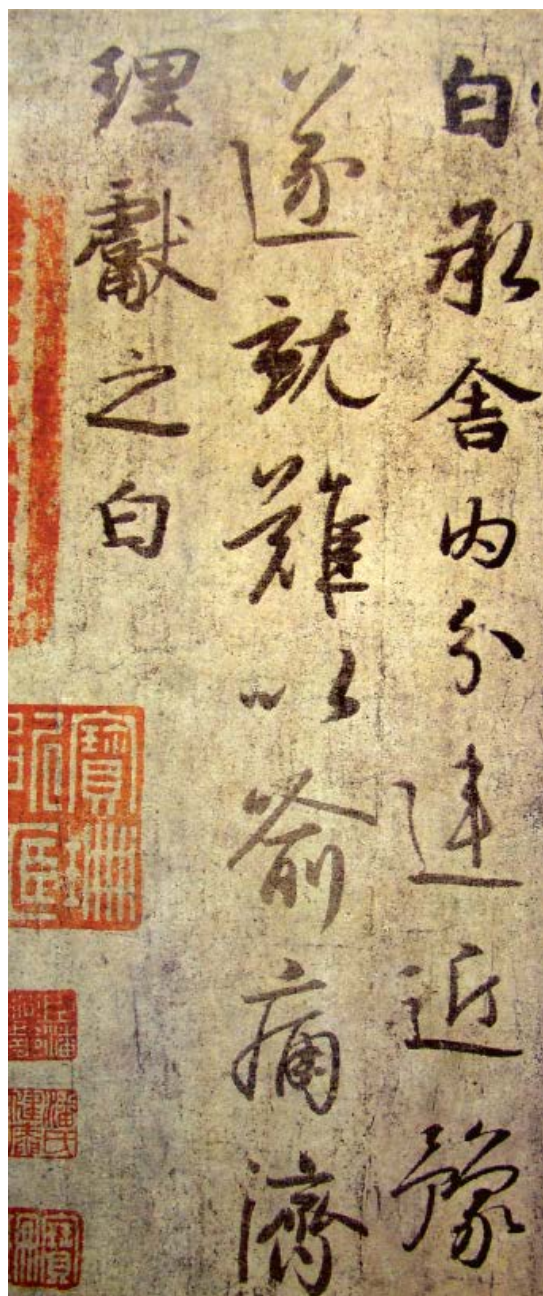 白承舍內分違近豫
遂就難以喻痛濟
理獻之白